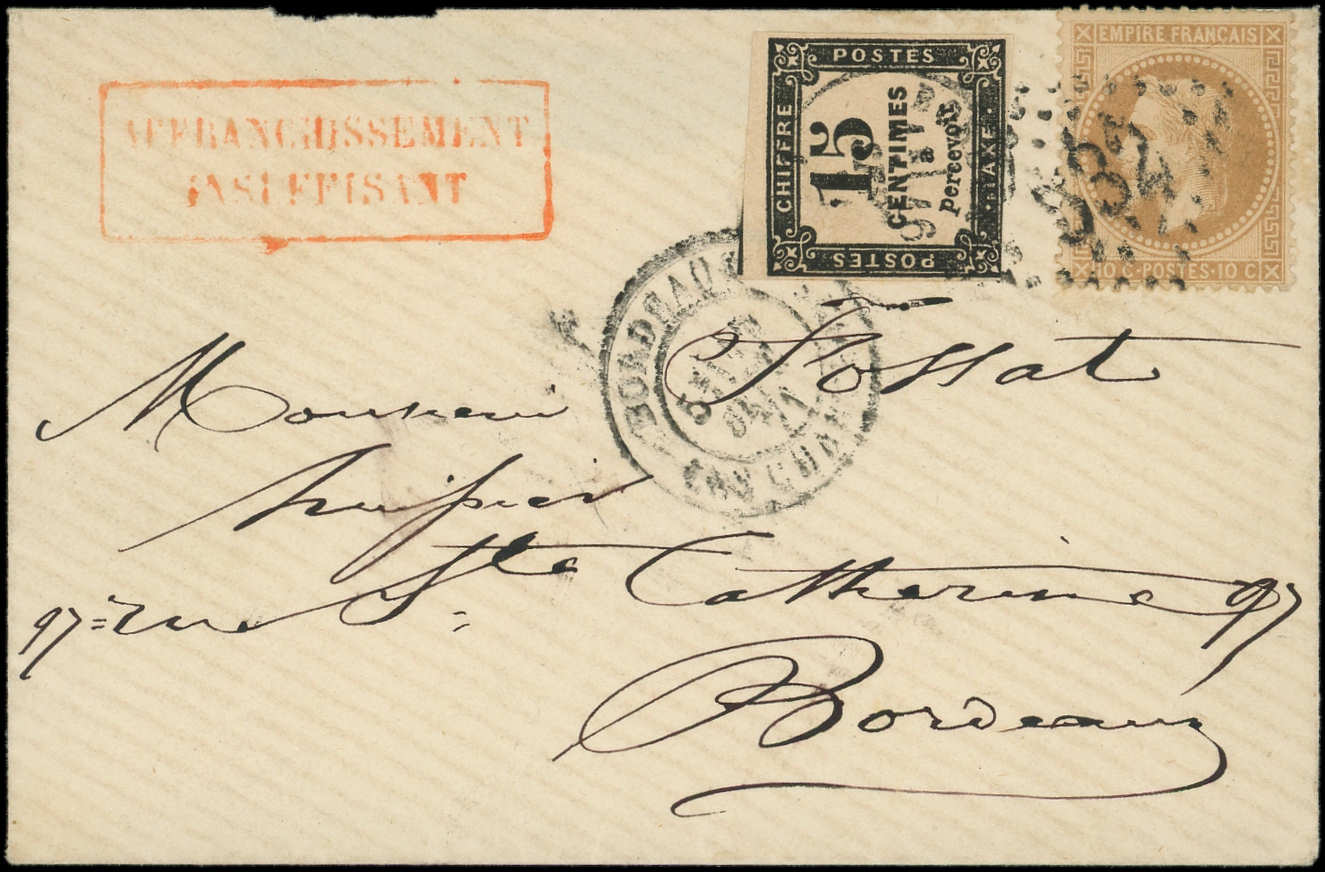 AFFRANCHISSEMENT
INSUFFISANT
POSTES
CHIFFRE
15
CENTIMES
à
percevoir
TAXE
POSTES
EMPIRE FRANÇAIS
10 C · POSTES · 10 C
BORDEAUX
Monsieur Fossat
97 = rue Ste Catherine 97
Bordeaux